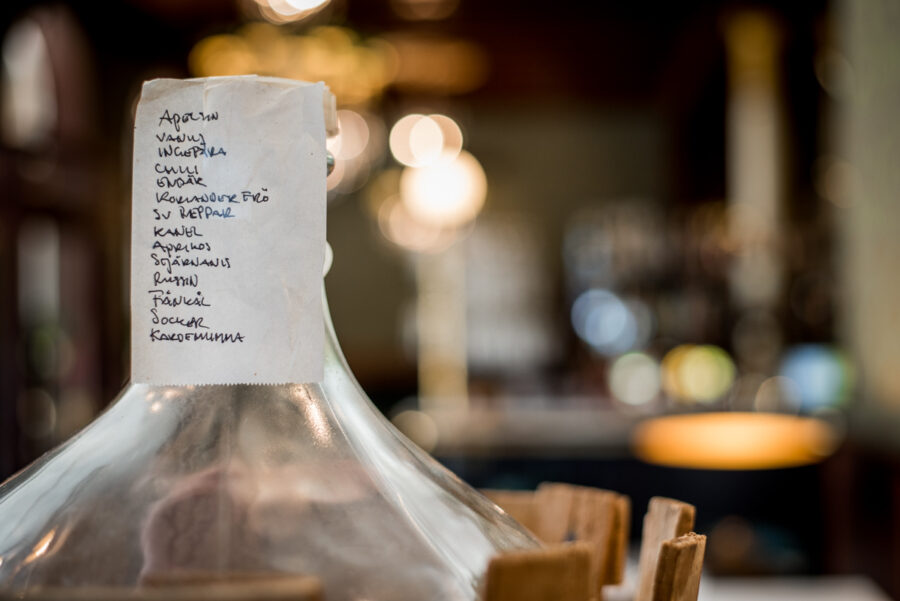 APELSIN
VANILJ
INGEFÄRA
CHILLI
ENBÄR
KORIANDER FRÖ
SV PEPPAR
KANEL
APRIKOS
STJÄRNANIS
RUSSIN
FÄNKÅL
SOCKER
KARDEMUMMA